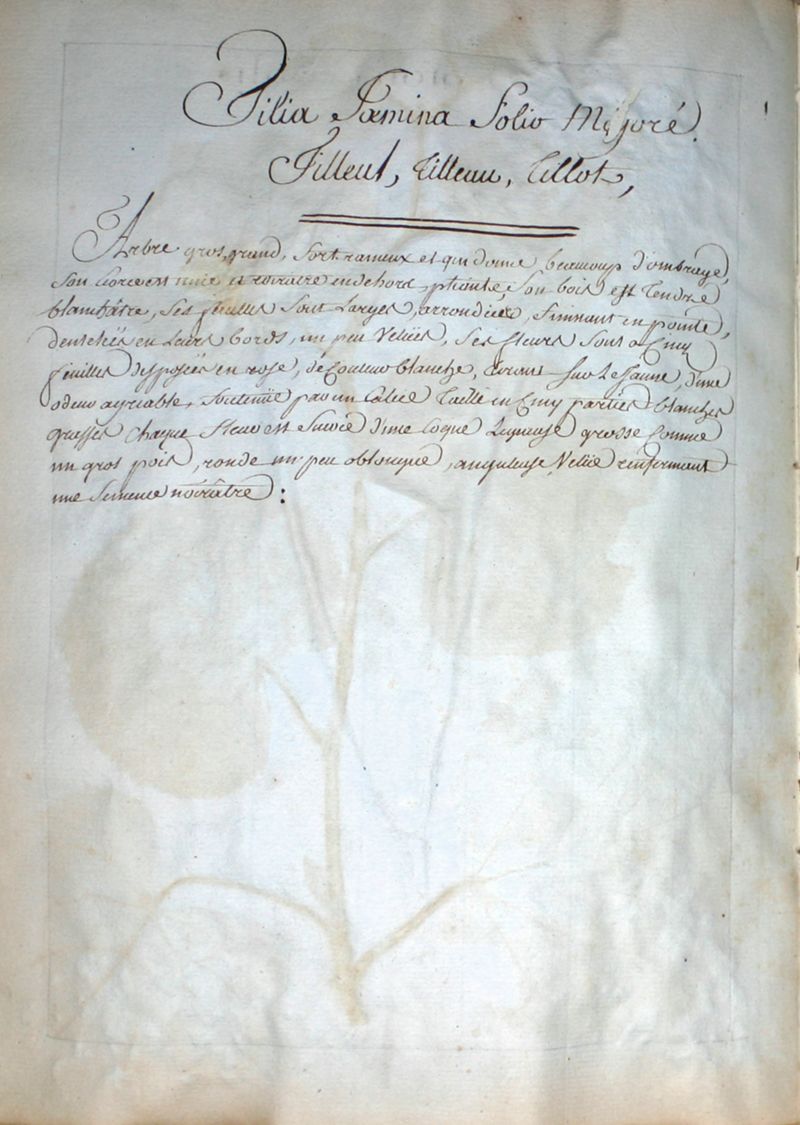 Tilia Fœmina Folio Majoré.
Tilleul, Tilleau, Tillot,
Arbre gros, grand, fort rameux et qui donne beaucoup d'ombrage,
Son écorce est unie et noiratre en dehors, pliante, Son bois est tendre
blanchâtre, Ses feuilles Sont Larges, arrondies, finissant en pointe,
dentelées en Leurs bords, un peu Velües, Ses fleurs Sont a Cinq
feuilles disposées en rose, de Couleur blanche, tirant Sur Le Jaune, d'une
odeur agréable, Soutenüe par un Calice Taillé en Cinq parties blanches
grasses Chaque fleur est Suivie d'une Coque Ligneuse grosse Comme
un gros pois, ronde un peu oblongue, anguleuse, Velüe renfermant
une Semence noirâtre :